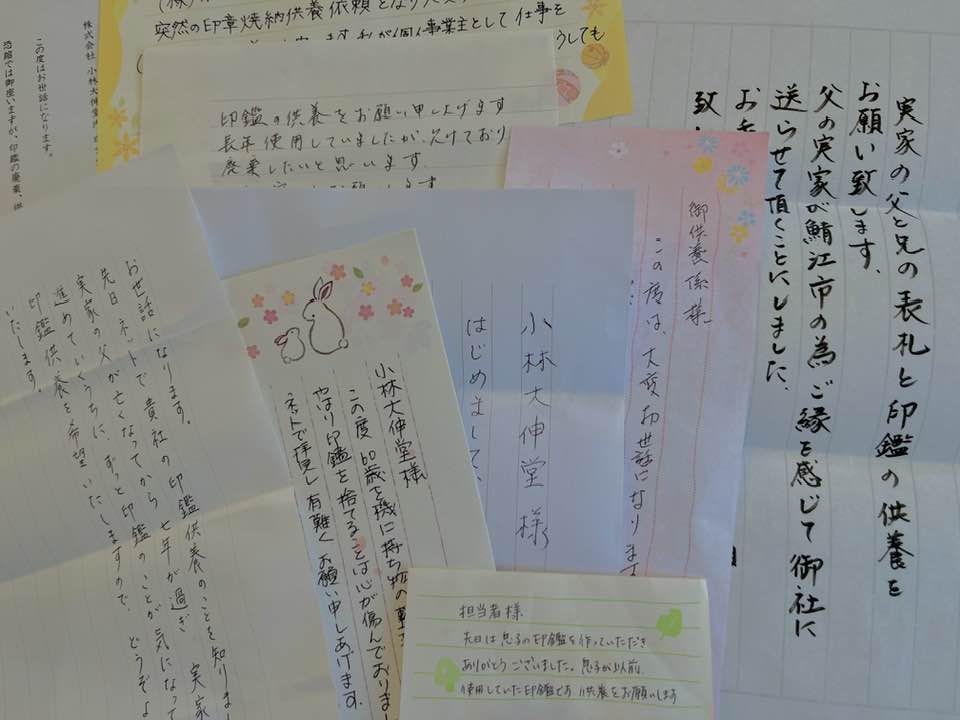 突然の印章焼納供養依頼となり
個人事業主として仕事を
印鑑の供養をお願い申し上げます
長年使用していましたが、欠けており
廃棄したいと思います
実家の父と兄の表札と印鑑の供養を
お願い致します。
父の実家が鯖江市の為ご縁を感じて御社に
送らせて頂くことにしました。
御供養係様
この度は、大変お世話になります
小林大伸堂様
はじめまして、
小林大伸堂様
この度60歳を機に持ち物の
やはり印鑑を捨てることは心が傷んでおりま
ネットで拝見し有難くお願い申しあげます。
お世話になります。
先日、ネットで貴社の印鑑供養のことを知りま
実家の父が亡くなってから七年が過ぎ 実家
進めていくうちに、ずっと印鑑のことが気になって
印鑑供養を希望いたしますので、どうぞよ
いたします。
株式会社 小林大伸堂
この度はお世話になります。
恐縮では御座いますが、印鑑の廃棄、
担当者様
先日は息子の印鑑を作っていただき
ありがとうございました。息子が以前
使用していた印鑑です 供養をお願いします